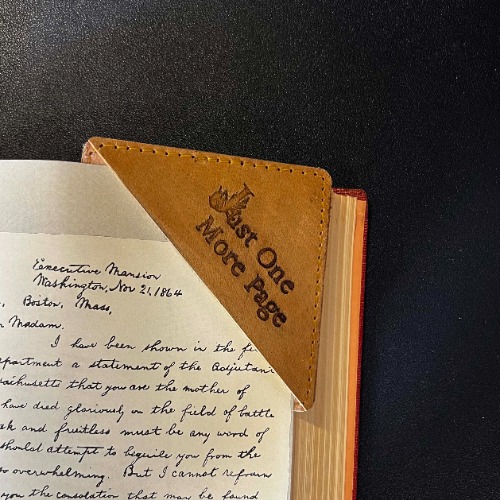 Just One
More Page
Executive Mansion
Washington, Nov 21, 1864
Boston, Mass,
Madam.
I have been shown in the
a statement of the Adjutan
that you are the mother of
have died gloriously on the field of battle
and fruitless must be any word of
should attempt to beguile you from the
overwhelming. But I cannot refrain
you the consolation that may be found